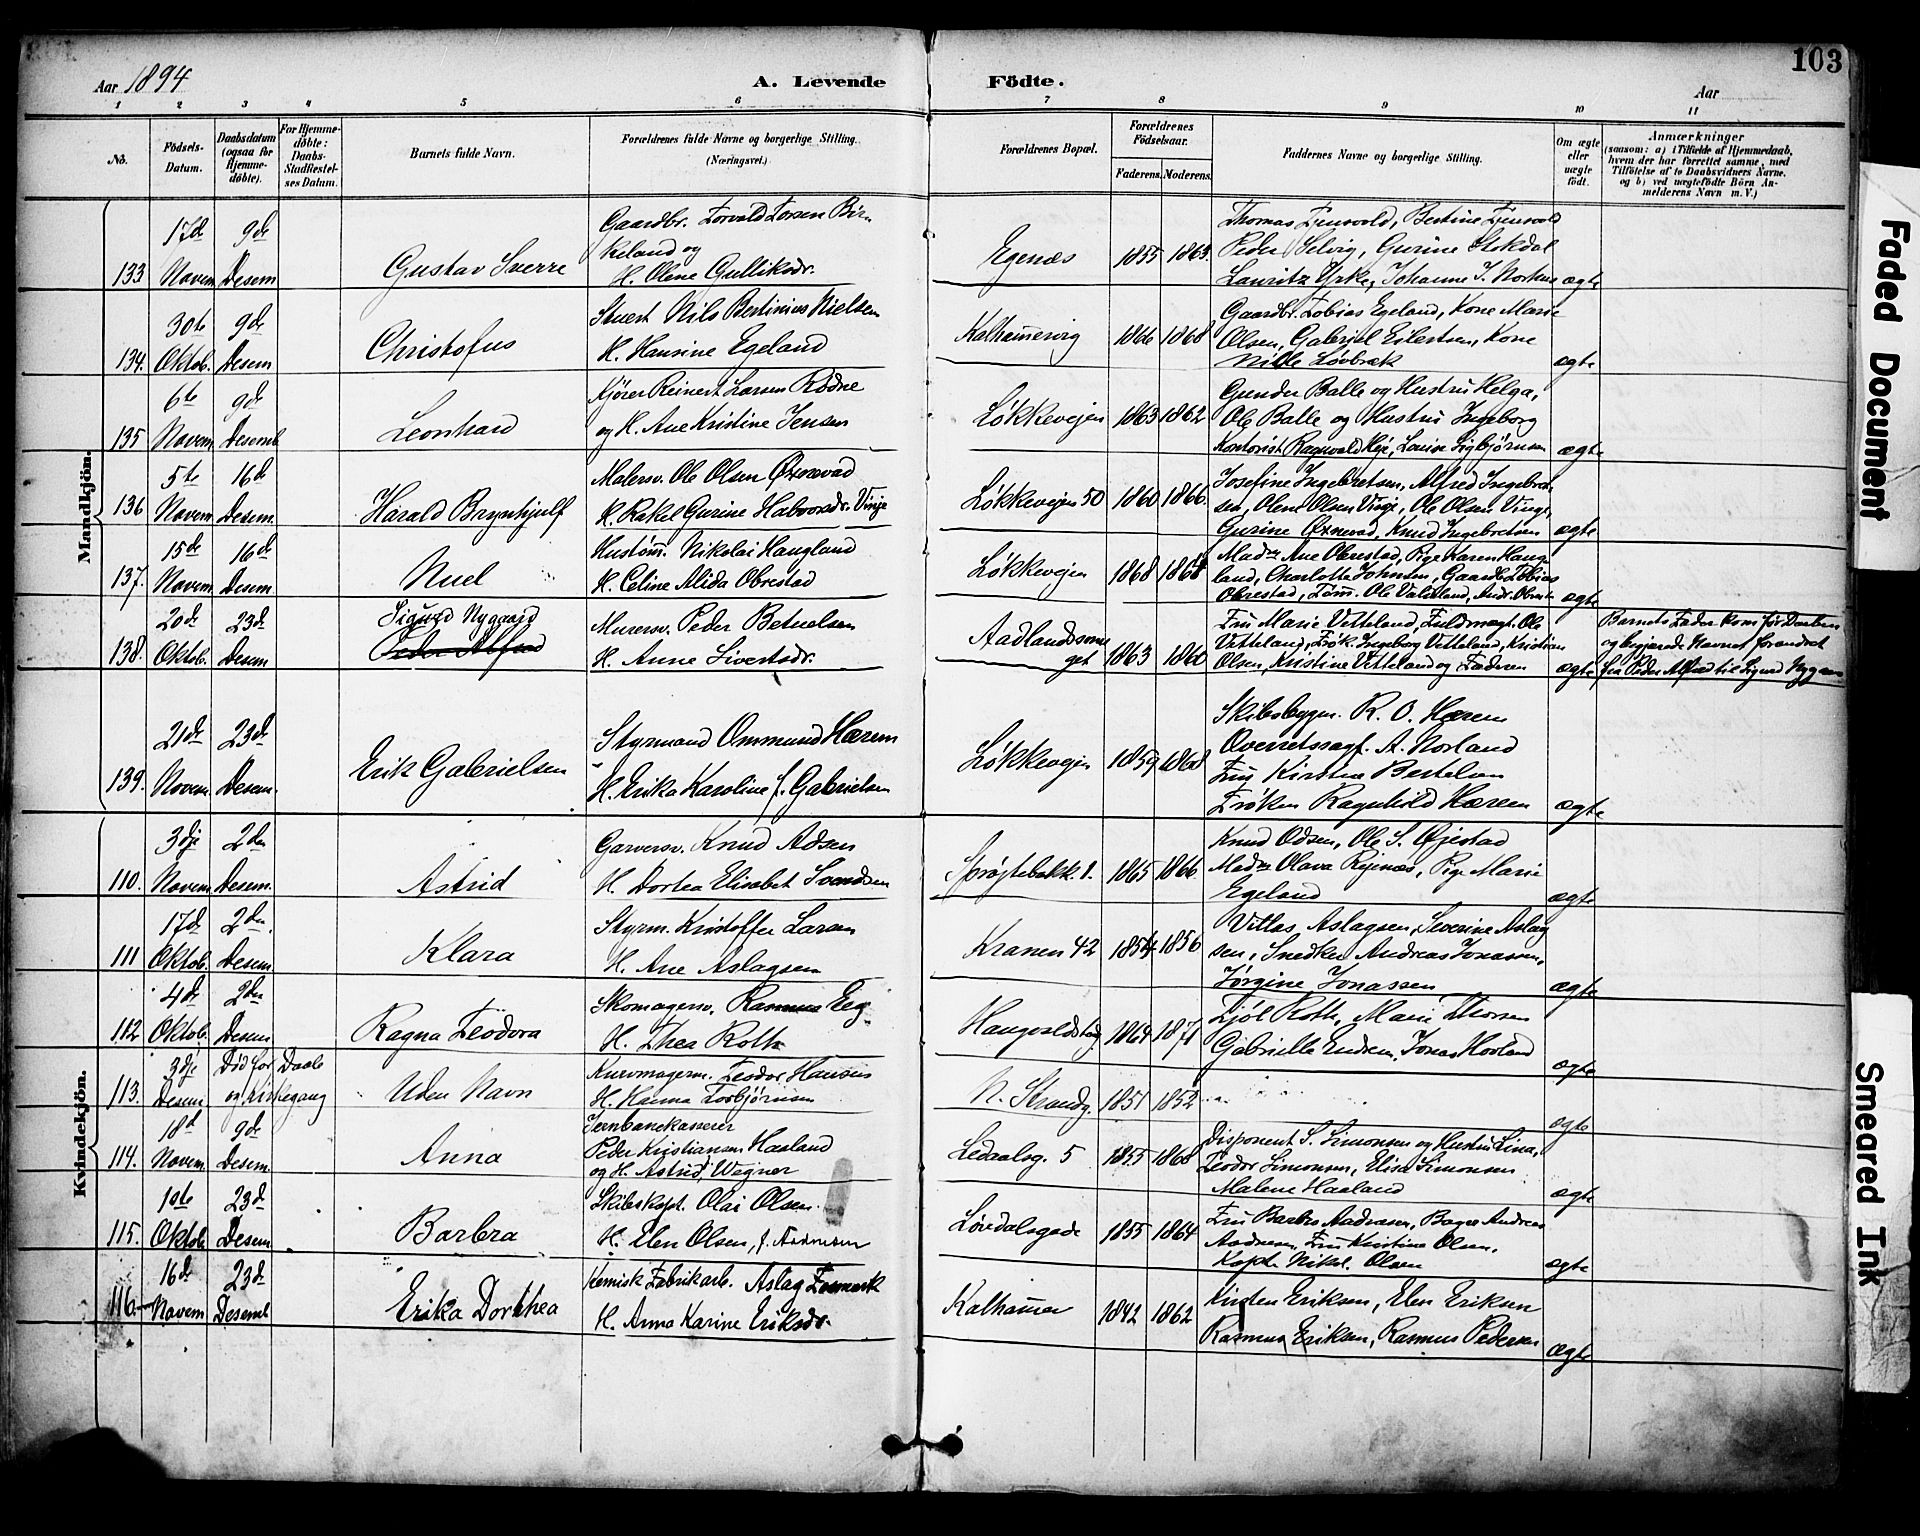 103
Aar 1894
A. Levende Födte.
Aar
1 2 3 4 5 6 7 8 9 10 11
No.
Födsels-
Datum.
Daabsdatum
(ogsaa for
Hjemme-
döbte).
For Hjemme-
döbte:
Daabs-
Stadfæstel-
ses Datum.
Barnets fulde Navn.
Forældrenes fulde Navne og borgerlige Stilling.
(Næringsvei.)
Forældrenes Bopæl.
Forældrenes
Födselsaar.
Faderens. Moderens.
Faddernes Navne og borgerlige Stilling.
Om ægte
eller
uægte
födt.
Anmærkninger
(saasom: a) i Tilfælde af Hjemmedaab,
hvem der har forrettet samme, med
Tilföielse af to Daabsvidners Navne,
og b) ved uægtefödte Börn An-
melderens Navn m. V.)
Mandkjön.
133
17de
Novem
9de
Desem
Gustav Sverre
Gaardbr. Torvald Torsen Bir-
keland og
H. Oline Gulliksdr.
Egenæs
1855 1863.
Thomas Tjensvold, Bertine Tjensvold
Peder Selvig, Gurine Stokdal
Lauritz Yrke, Johanne I.
ægte
134.
30te
Oktob.
9de
Desem
Christofus
Stuert Nils Bertinius Nielsen
H. Hansine Egeland
Kalhammervig
1866 1868
Gaardbr. Tobias Egeland, Kone Marie
Olsen, Gabriel Eilertsen, Kone
Nille Løvbræk
ægte
135
6te
Novem
9de
Desemb
Leonhard
Kjører Reinert Larsen Rødne
og H. Ane Kristine Jensen
Løkkevejen
1863 1862
Gunder Balle og Hustru Helga,
Ole Balle og Hustru Ingeborg
Kontorist Ragnvald Høje, Lovise Sigbjørnsen
ægte
136
5te
Novem
16de
Desem.
Harald Brynhjulf
Malersv. Ole Olsen Øxnevad
H. Rakel Gurine Halvorsdr. Vinje
Løkkevejen 50
1860 1866.
Josefine Ingebretsen, Alfred Ingebret-
sen, Olene Olsen Vinge, Ole Olsen Vinge,
Gurine Øxnevad, Knud Ingebretsen
ægte
137.
15de
Novem
16de
Desem
Nuel
Hustøm. Nikolai Haugland
H. Celine Alida Obrestad
Løkkevejen
1868 1868
Madm Ane Obrestad, Pige Karen Haug-
land, Charlotte Johnsen, Gaardb. Tobias
Obrestad, Tøm. Ole Valeland, Andr. Obrest
ægte
138.
20de
Oktob.
23de
Desem
Sigurd Nygaard
Peder Alfred
Murersv. Peder Betuelsen
H. Anne Sivertsdr.
Aadlandssmu
get
1863 1860
Fru Marie Vetteland, Fuldmægt. Ole
Vetteland, Frøk. Ingeborg Vetteland, Kristian
Olsen, Kristine Vetteland og Faderen
ægte
Barnets Fader kom før Daaben
og begjærede Navnet forandret
fra Peder Alfred til Sigurd Nygaard
139.
21de
Novem.
23de
Desem.
Erik Gabrielsen
Styrmand Ommund Hærem
H. Erika Karoline f. Gabrielsen
Løkkevejen
1859 1868
Skibsbygm. R. O. Hærem
Overretssagf. A. Norland
Fru Kirstine Bertelsen
Frøken Ragnhild Hærem
ægte
Kvindekjön.
110.
3dje
Novem.
2den
Desem.
Astrid
Garversv. Knud Adsen
H. Dortea Elisabet Svendsen
Sprøjtebakk. 1.
1865 1866.
Knud Odsen, Ole S. Øjestad
Madm Olava Rejenæs, Pige Marie
Egeland
ægte
111
17de
Oktob.
2den.
Desem
Klara
Styrm. Kristoffer Larsen
H. Ane Aslagsen
Kranen 42
1854 1856
Villas Aslagsen, Severine Aslag
sen, Snedker Andreas Jonassen,
Jørgine Jonassen
ægte
112
4de
Oktob.
2den
Desem
Ragna Teodora
Skomagersv. Rasmus Eeg
H. Thea Roth
Haugvaldstad
1864 1871
Fjøl Roth, Marie Thorsen
Gabrielle Endresen, Jonas Hovland
ægte
113.
3dje
Desem
Død før Daab
og Kirkegang
Uden Navn
Kurvmagerm. Teodor Hansen
H. Hanna Torbjørnsen
N. Strandg.
1851 1852
ægte
114.
18de
Novem.
9de
Desem.
Anna
Jernbanekasserer
Peder Kristiansen Haaland
og H. Astrid Wegner
Ledaalsg. 5
1855 1868
Disponent S. Simonsen og Hustru Lina,
Teodor Simonsen, Elise Simonsen
Malene Haaland
ægte
115.
10te
Oktob
23de
Desem
Barbra
Skibskapt. Olai Olsen.
H. Elen Olsen, f. Aadnesen
Løvdalsgade
1855 1864
Fru Barbro Aadnesen, Bager Andreas
Aadnesen, Fru Kristine Olsen,
Kapt. Nikol. Olsen
ægte
116
16de
Novem
23de
Desemb
Erika Dorthea
Kemisk Fabrikarb. Aslag
H. Anna Karine Eriksdr.
Kalhammer
1842 1862
Kirsten Eriksen, Elen Eriksen
Rasmus Eriksen, Rasmus Pedersen
ægte
Faded Document
Smeared Ink